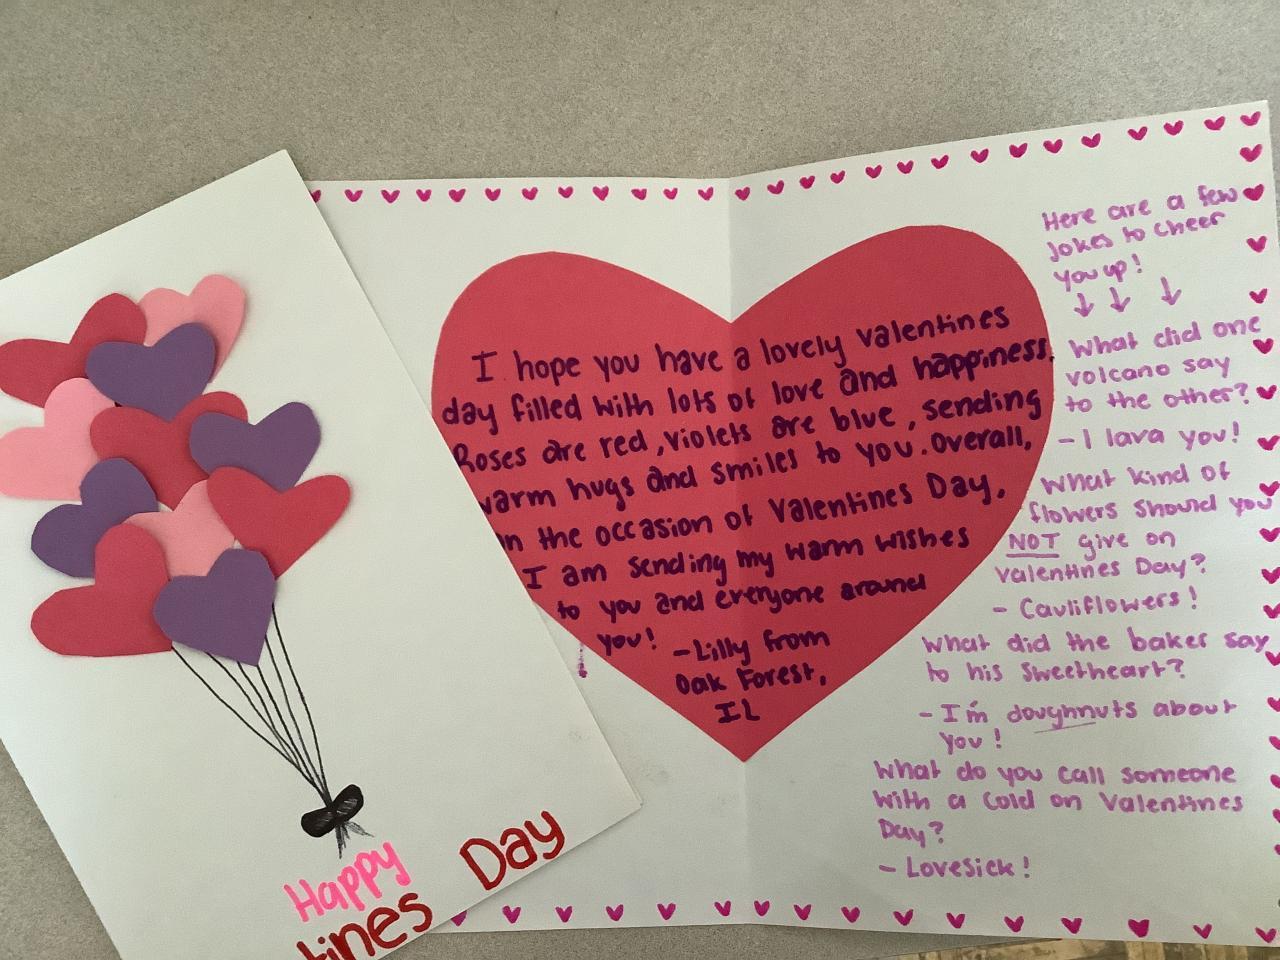 Happy
tines Day
I hope you have a lovely valentines
day filled with lots of love and happiness.
Roses are red, violets are blue, sending
warm hugs and smiles to you. Overall,
on the occasion of Valentines Day,
I am sending my warm wishes
to you and everyone around
you! -Lilly from
Oak Forest,
IL
Here are a few
jokes to cheer
you up!
What did one
volcano say
to the other?
- I lava you!
What kind of
flowers should you
NOT give on
Valentines Day?
- Cauliflowers!
What did the baker say
to his sweetheart?
- I'm doughnuts about
you!
What do you call someone
with a cold on Valentines
Day?
- Lovesick!